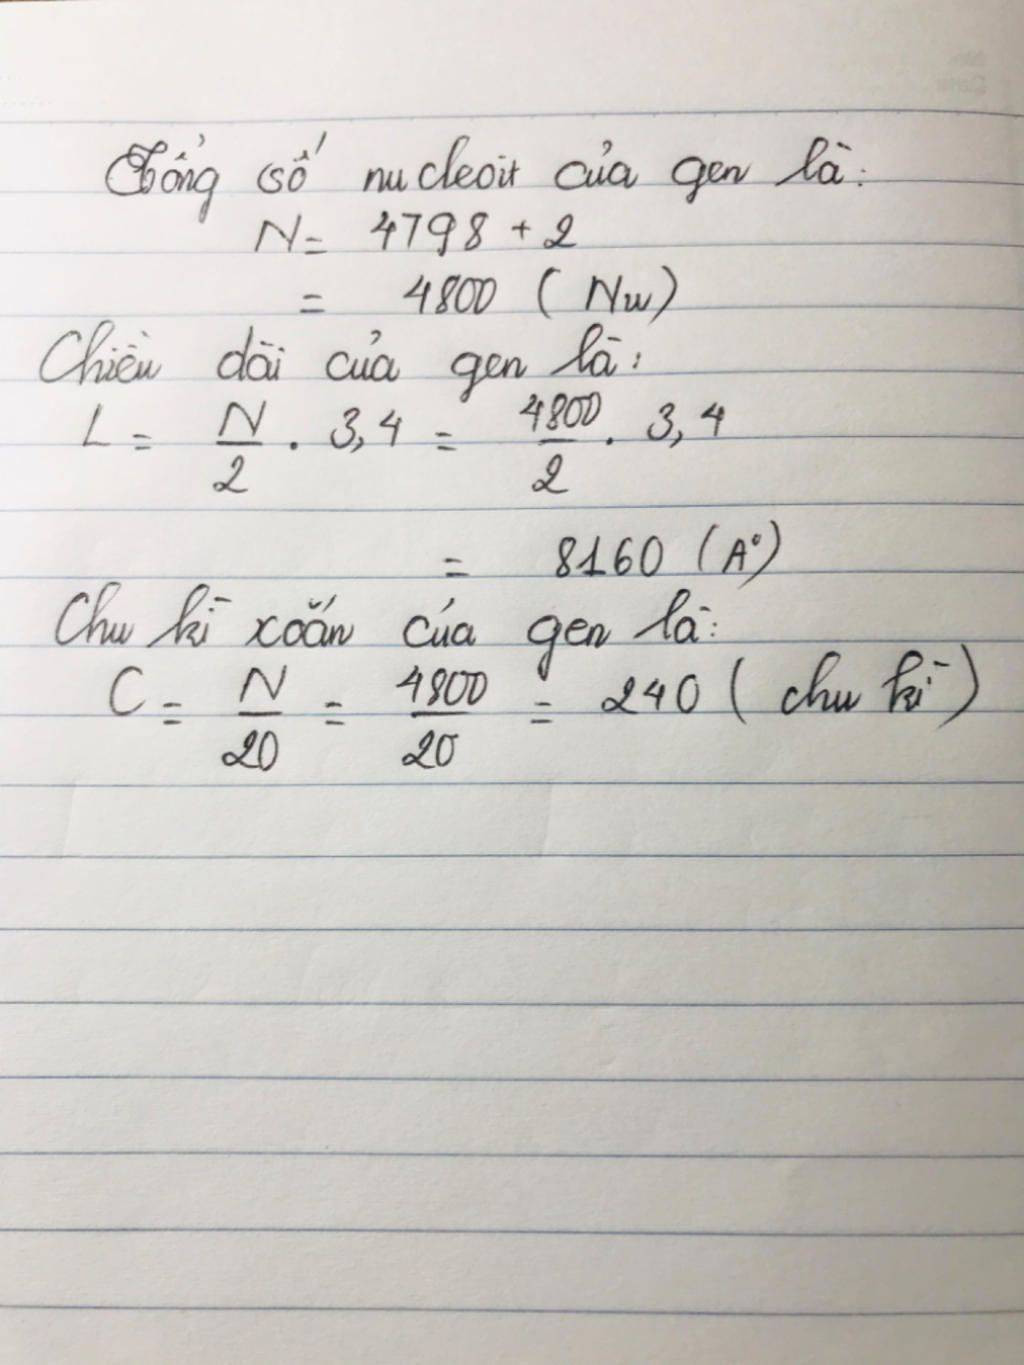 Tổng số nucleoit của gen là:
N = 4798 + 2
= 4800 (Nu)
Chiều dài của gen là:
L = N/2 . 3,4 = 4800/2 . 3,4
= 8160 (A°)
Chu kì xoắn của gen là:
C = N/20 = 4800/20 = 240 (chu kì)